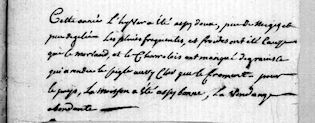 Cette année L'hyver a été assez doux, peu de neiges et
peu de gelées Les pluies frequentes, et froides ont été Causes
que le morland, et le Charolois ont manqué de grains
qui a rendu le seigle aussy Cher que le froment pour
le pays, La moisson a été assez bonne, La Vendange
abondante